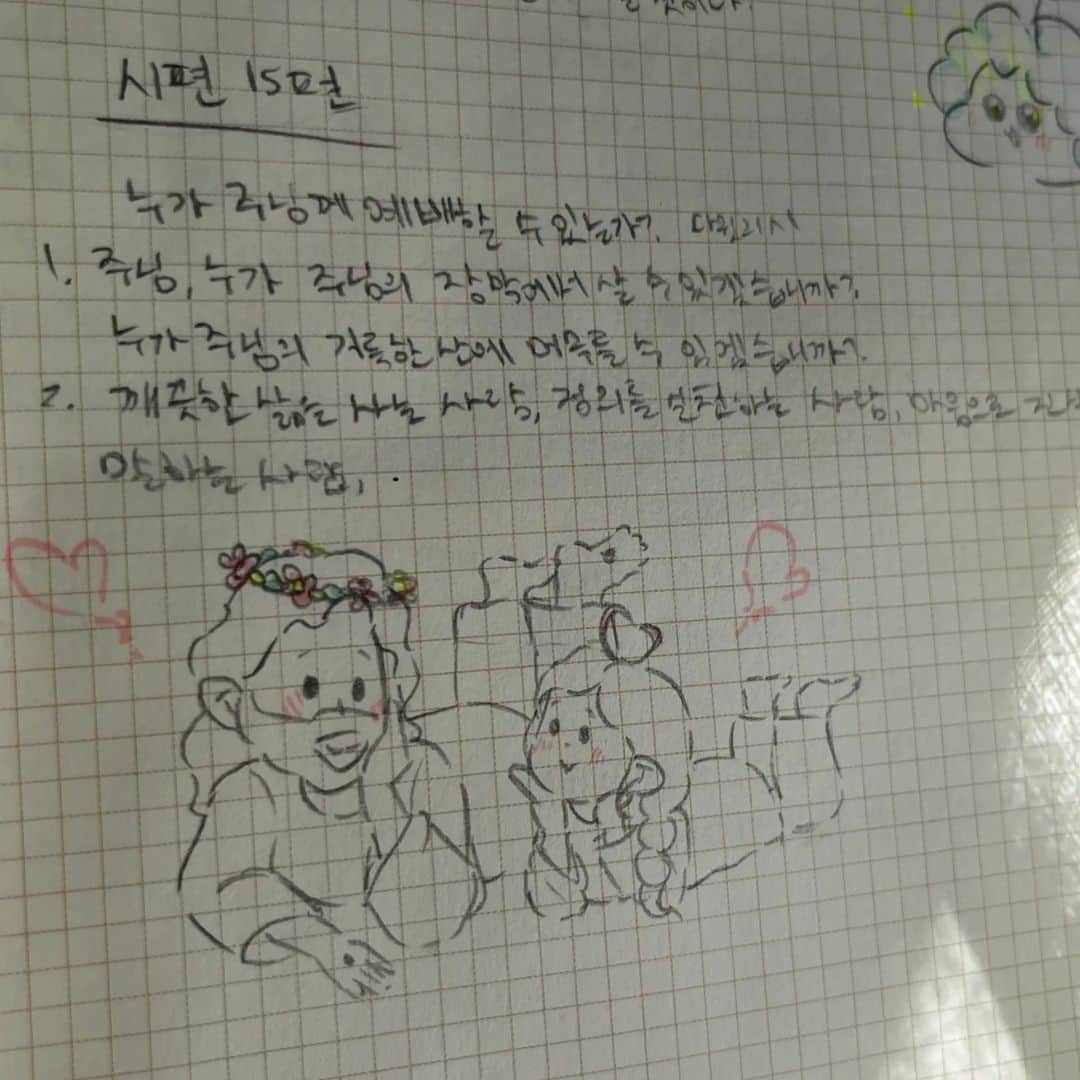 것이다.
시편 15편
누가 주님께 예배할 수 있는가? 다윗의 시
1. 주님, 누가 주님의 장막에서 살 수 있겠습니까?
누가 주님의 거룩한 산에 머무를 수 있겠습니까?
2. 깨끗한 삶을 사는 사람, 정의를 실천하는 사람, 마음으로
말하는 사람,